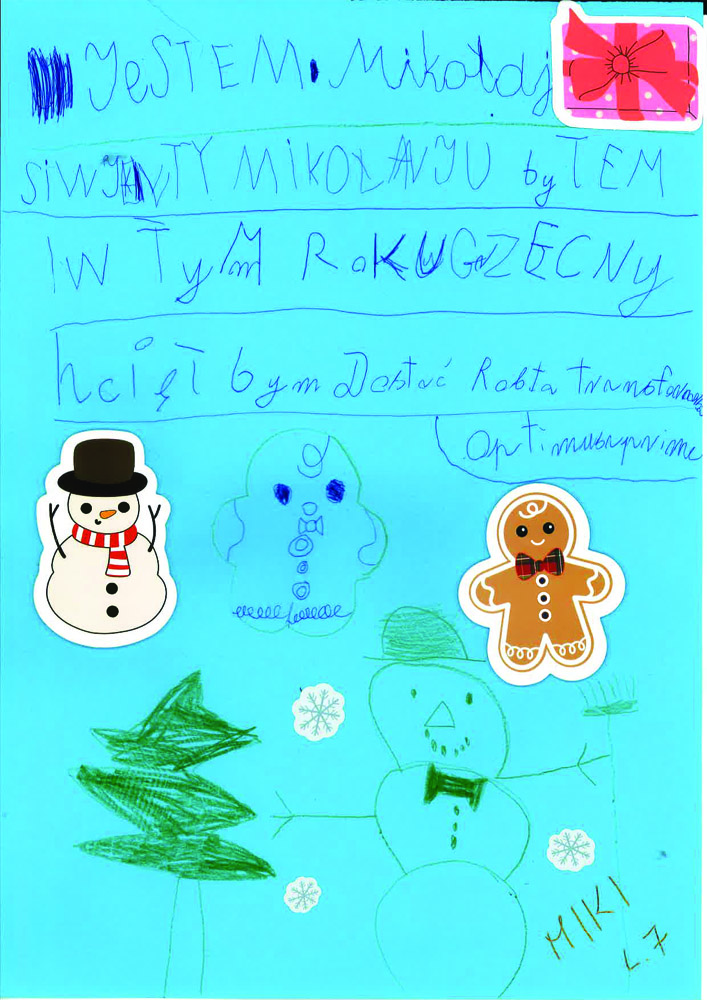 JeSTEM Mikołaj
SiWJNTY MIKOŁAJU byŁEM
IW TyM RoKU GRZECNy
hciął bym Dostać Robta transformersa
optimusprime
MIKI
L.7